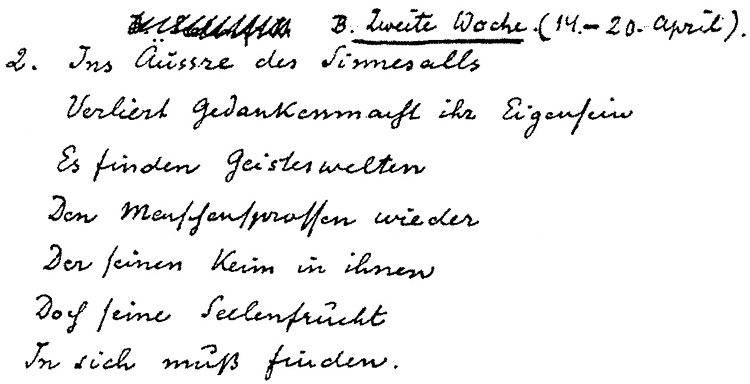 B. Zweite Woche. (14.–20. April).
2. Ins Äussre des Sinnesalls
Verliert Gedankenmacht ihr Eigensein
Es finden Geisteswelten
Den Menschensprossen wieder
Der seinen Keim in ihnen
Doch seine Seelenfrucht
In sich muß finden.